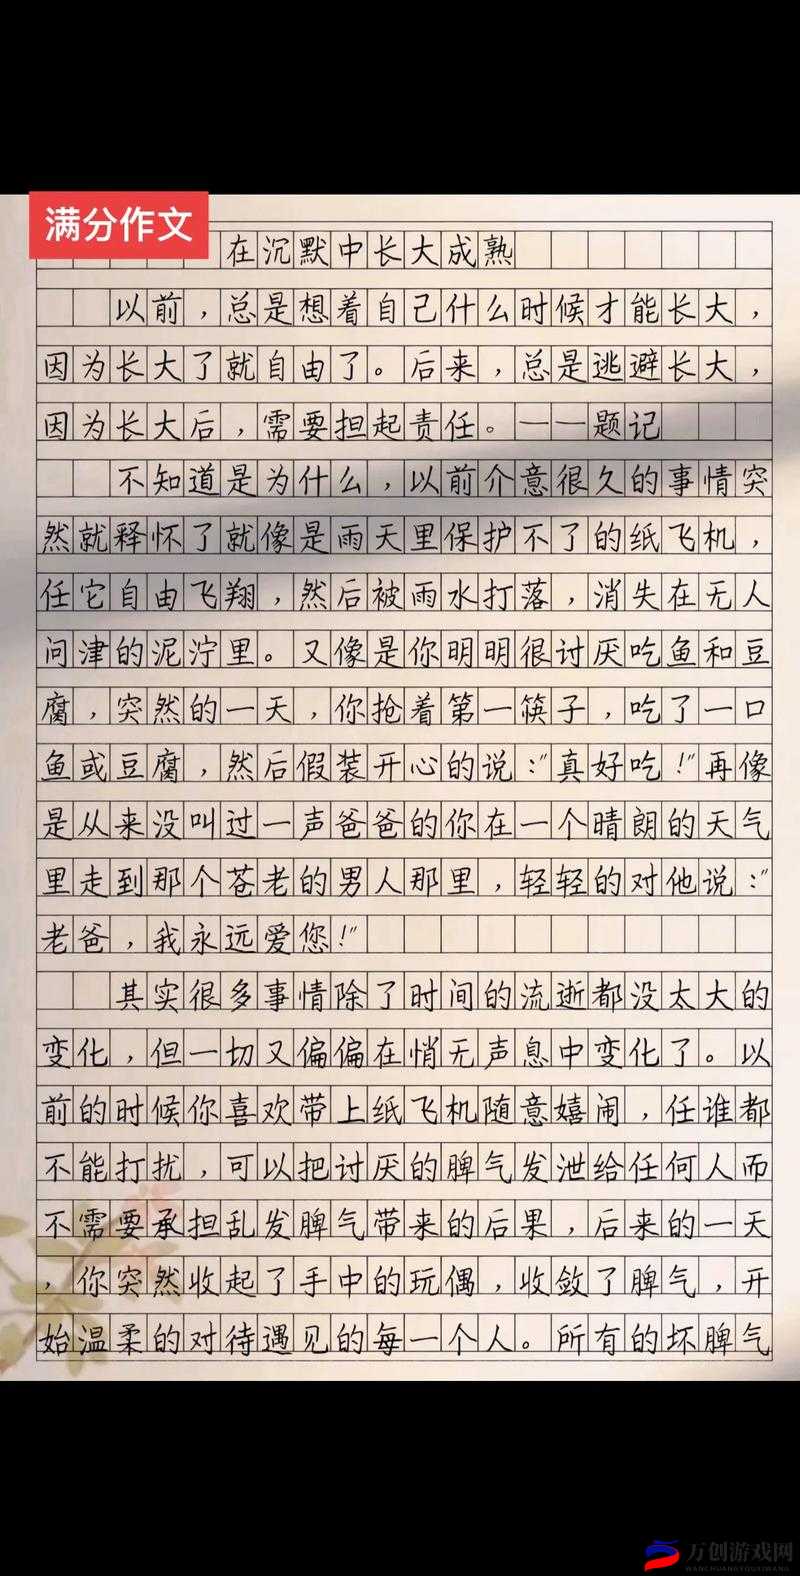 满分作文
在沉默中长大成熟
以前，总是想着自己什么时候才能长大，
因为长大了就自由了。后来，总是逃避长大，
因为长大后，需要担起责任。——题记
不知道是为什么，以前介意很久的事情突
然就释怀了就像是雨天里保护不了的纸飞机，
任它自由飞翔，然后被雨水打落，消失在无人
问津的泥泞里。又像是你明明很讨厌吃鱼和豆
腐，突然的一天，你抢着第一筷子，吃了一口
鱼或豆腐，然后假装开心的说："真好吃！"再像
是从来没叫过一声爸爸的你在一个晴朗的天气
里走到那个苍老的男人那里，轻轻的对他说："
老爸，我永远爱您！"
其实很多事情除了时间的流逝都没太大的
变化，但一切又偏偏在悄无声息中变化了。以
前的时候你喜欢带上纸飞机随意嬉闹，任谁都
不能打扰，可以把讨厌的脾气发泄给任何人而
不需要承担乱发脾气带来的后果，后来的一天
，你突然收起了手中的玩偶，收敛了脾气，开
始温柔的对待遇见的每一个人。所有的坏脾气
万创游戏网
WANCHUANGYOUXIWANG